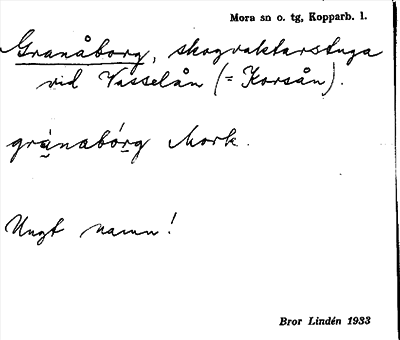 Mora sn o. tg, Kopparb. l.
Granåborg, skogvaktarstuga
vid Vasselån (= Korsån).
gránabórg Mork.
Ungt namn!
Bror Lindén 1933